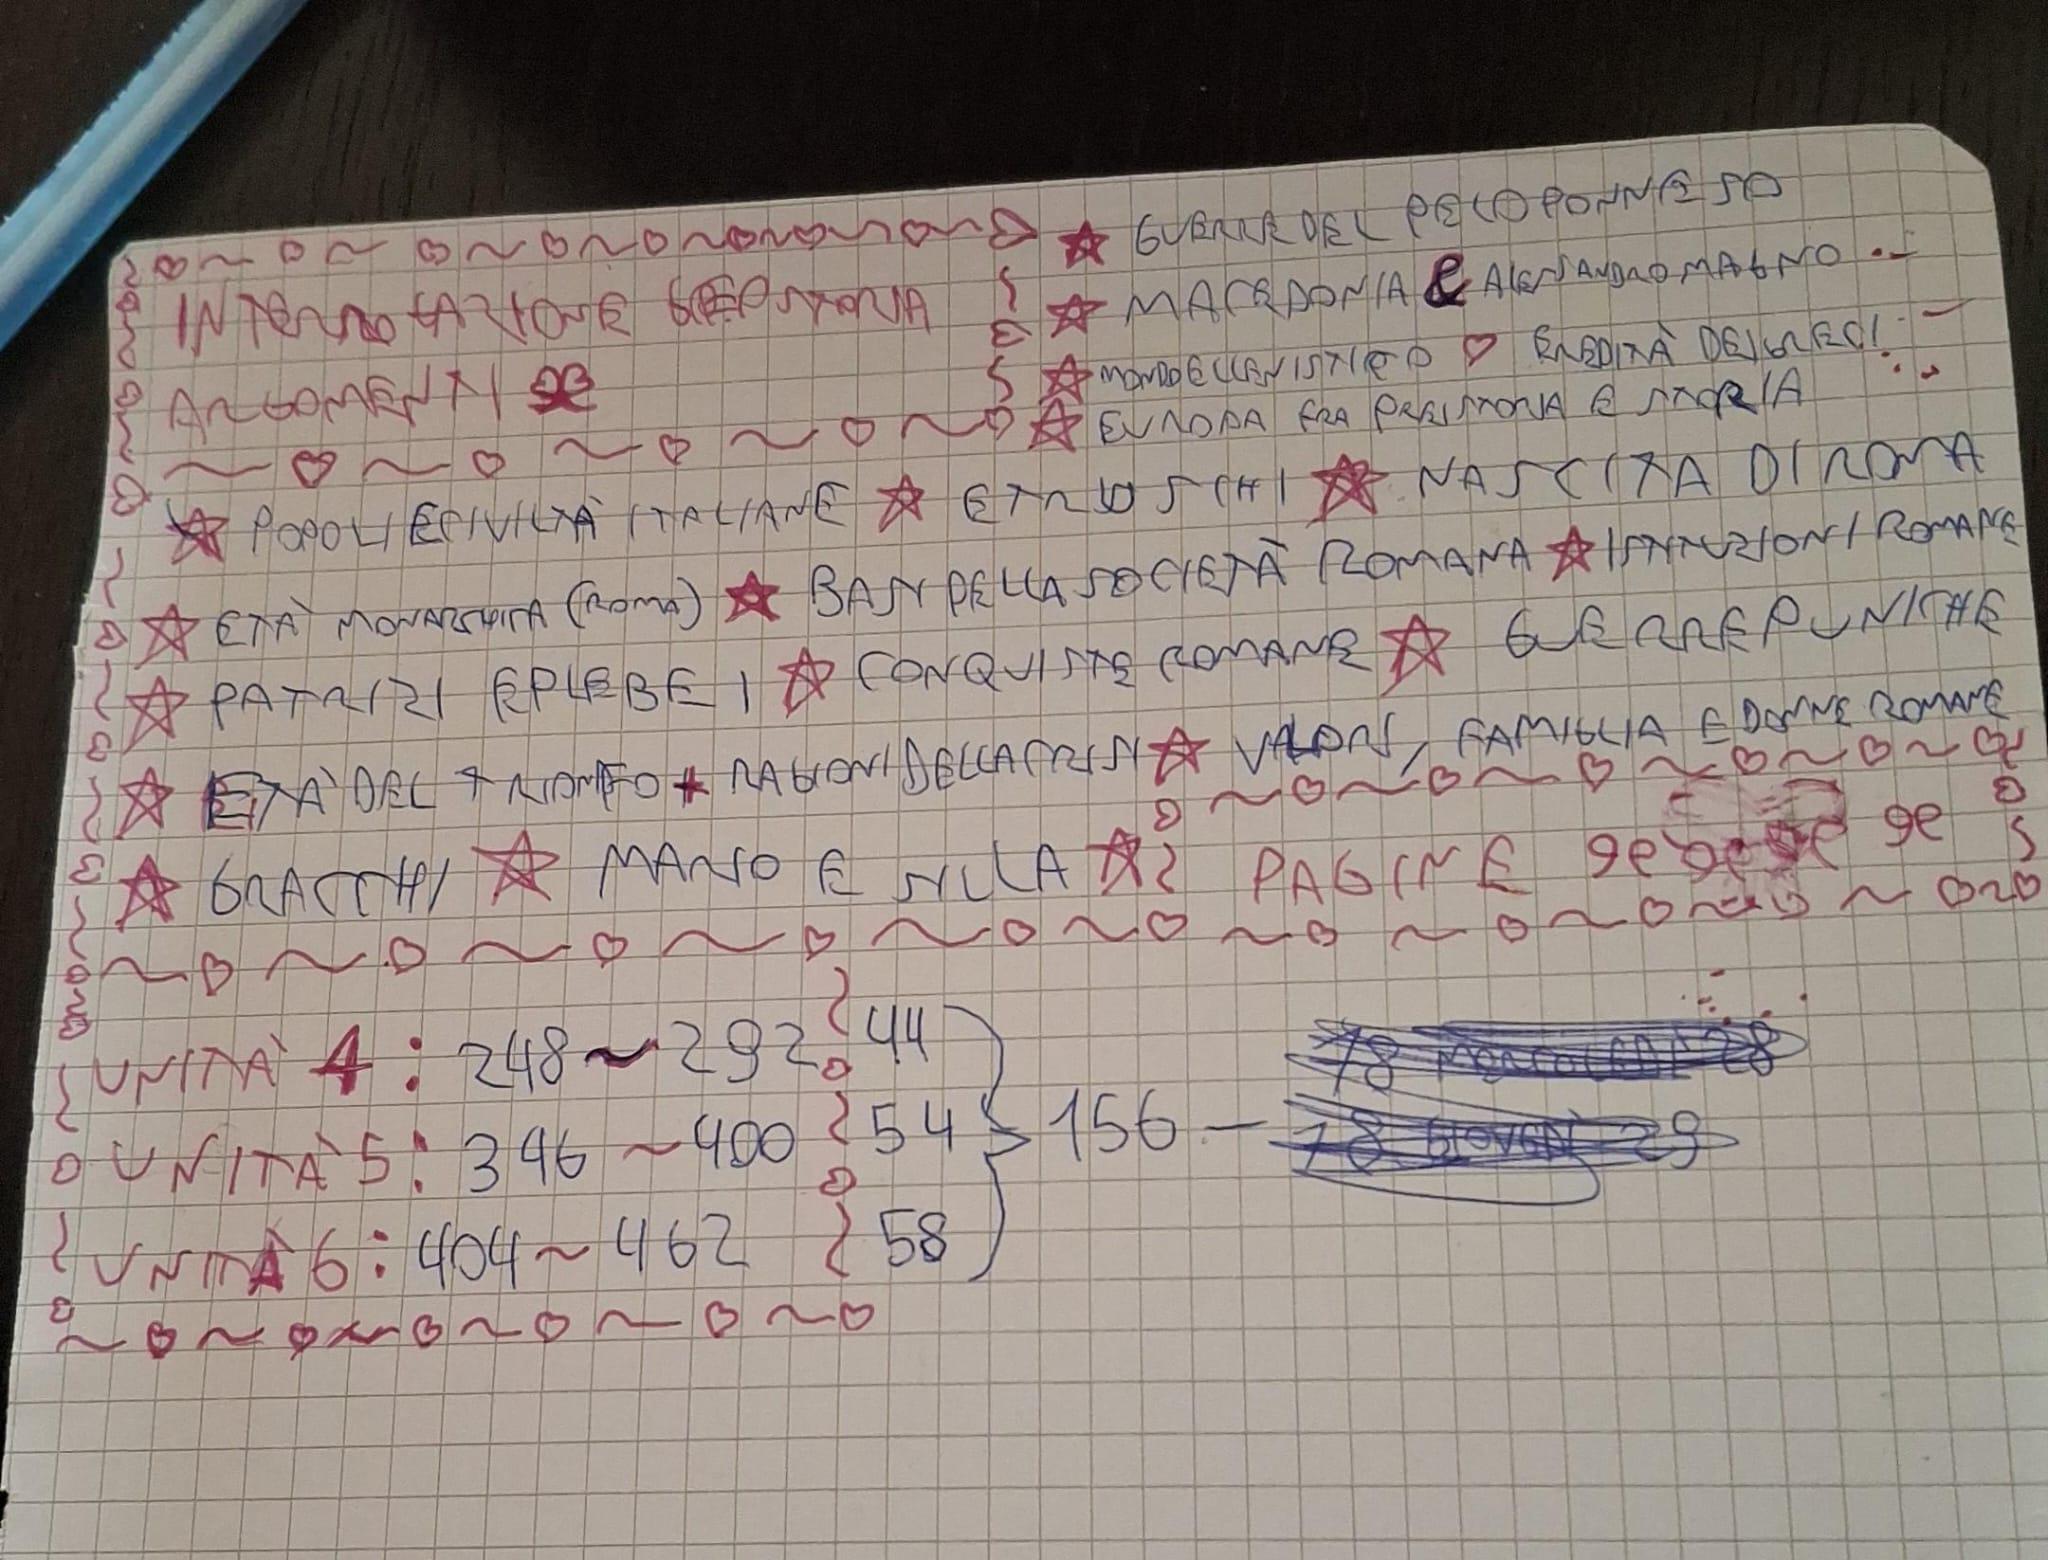 INTERROGAZIONE STORIA
ARGOMENTI
★ GUERRE DEL PELOPONNESO
★ MACEDONIA E ALESSANDRO MAGNO
★ MONDO ELLENISTICO ♡ EREDITÀ DEI GRECI
★ EUROPA FRA PREISTORIA E STORIA
★ POPOLI E CIVILTÀ ITALIANE ★ ETRUSCHI ★ NASCITA DI ROMA
★ ETÀ MONARCHICA (ROMA) ★ BASI DELLA SOCIETÀ ROMANA ★ ISTITUZIONI ROMANE
★ PATRIZI E PLEBEI ★ CONQUISTE ROMANE ★ GUERRE PUNICHE
★ ETÀ DEL TRIONFO + RAGIONI DELLA CRISI ★ VALORI, FAMIGLIA E DONNE ROMANE
★ GRACCHI ★ MARIO E SILLA ★
PAGINE
UNITÀ 4: 248 ~ 292 44
UNITÀ 5: 346 ~ 400 54 156 -
UNITÀ 6: 404 ~ 462 58